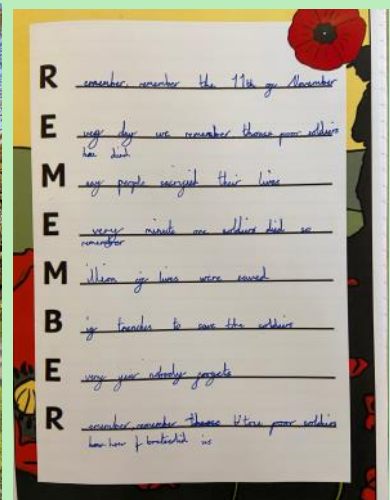 R emember, remember the 11th of November
E very day we remember thoose poor soldiers
how died
M any people sacrificed their lives
E very minute one soldiers died so
remember
M illion of lives were saved
B ig trenches to save the soldiers
E very year nobody forgets
R emember, remember thoose true poor soldiers